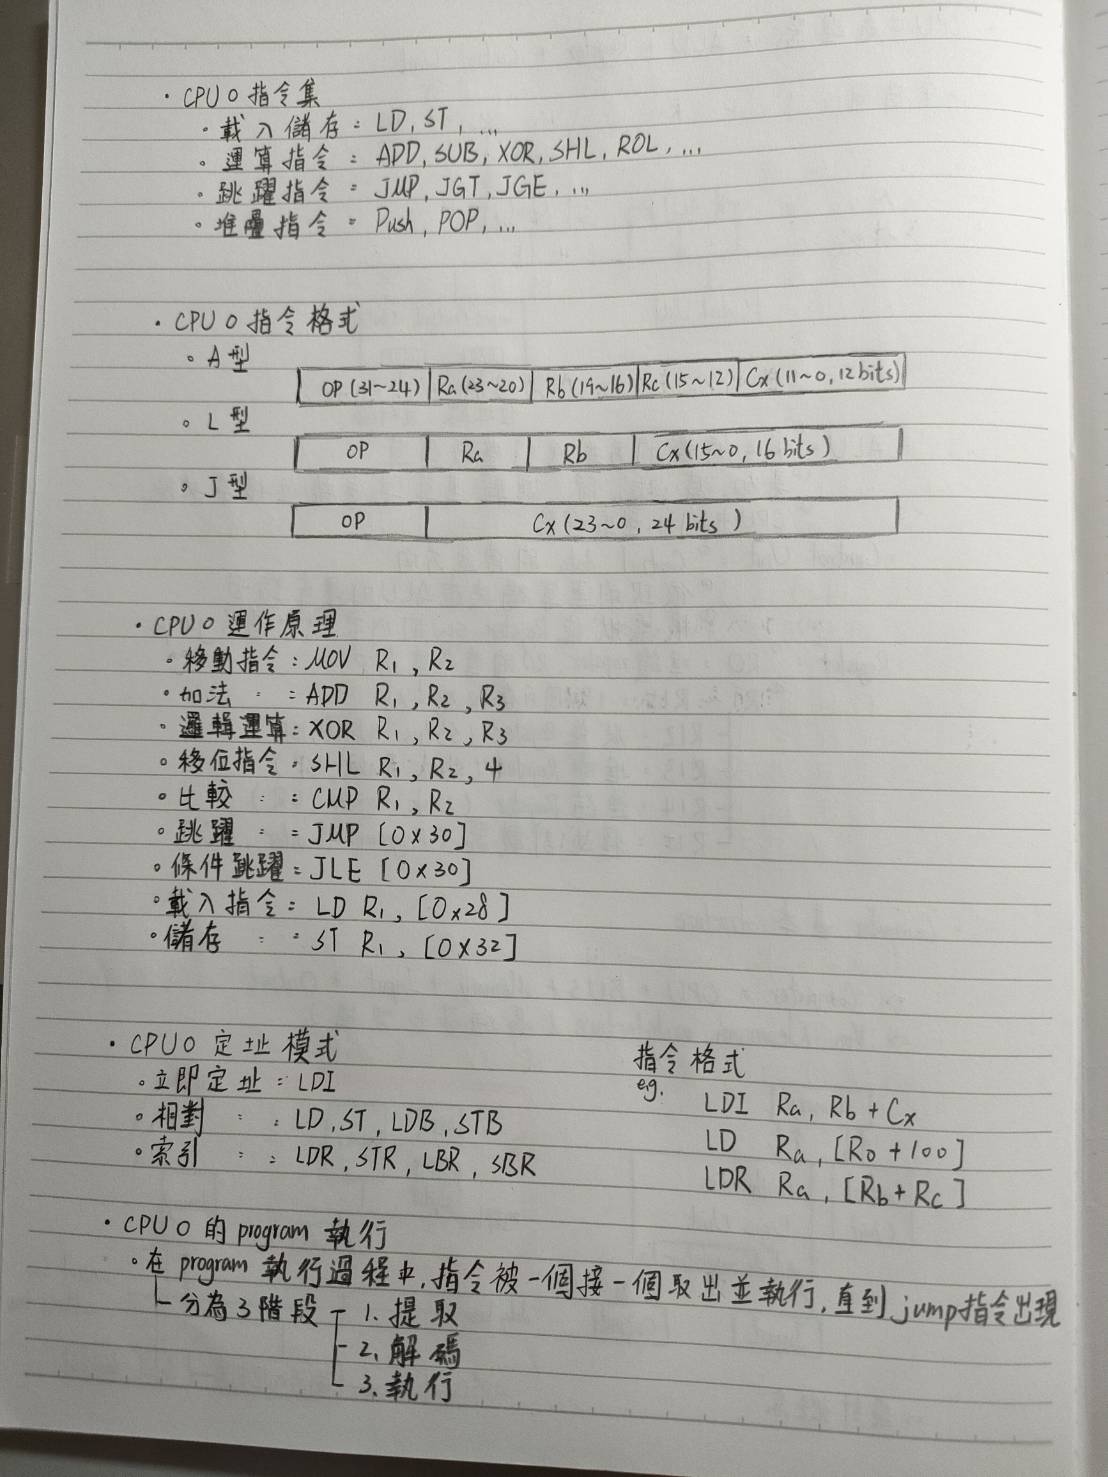 · CPU0 指令集
。載入儲存：LD, ST, ...
。運算指令：ADD, SUB, XOR, SHL, ROL, ...
。跳躍指令：JMP, JGT, JGE, ...
。堆疊指令：Push, POP, ...
· CPU0 指令格式
。A型
OP (31~24) Ra (23~20) Rb (19~16) Rc (15~12) Cx (11~0, 12 bits)
。L型
OP Ra Rb Cx (15~0, 16 bits)
。J型
OP Cx (23~0, 24 bits)
· CPU0 運作原理
。移動指令：MOV R1, R2
。加法 〃 ：ADD R1, R2, R3
。邏輯運算：XOR R1, R2, R3
。移位指令：SHL R1, R2, 4
。比較 〃 ：CMP R1, R2
。跳躍 〃 ：JMP [0x30]
。條件跳躍：JLE [0x30]
。載入指令：LD R1, [0x28]
。儲存 〃 ：ST R1, [0x32]
· CPU0 定址模式
。立即定址：LDI
。相對 〃 ：LD, ST, LDB, STB
。索引 〃 ：LDR, STR, LBR, SBR
指令格式
e.g. LDI Ra, Rb + Cx
LD Ra, [R0 + 100]
LDR Ra, [Rb + Rc]
· CPU0 的 program 執行
。在 program 執行過程中, 指令被一個接一個取出並執行, 直到 jump指令出現
分為3階段 1. 提取
2. 解碼
3. 執行